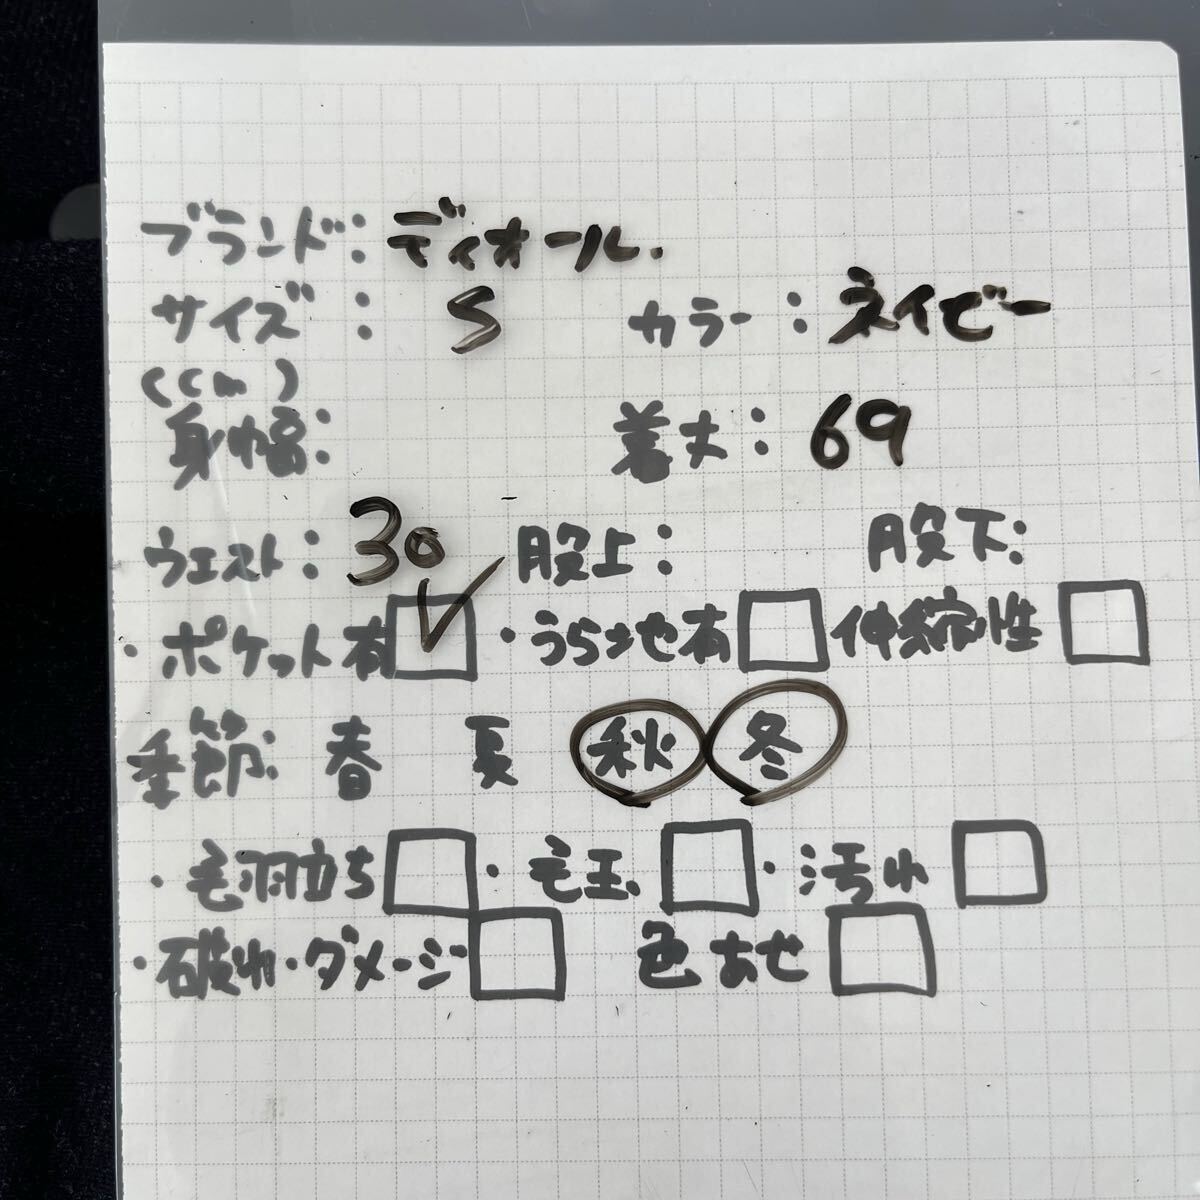 ブランド: ディオール.
サイズ: S カラー: ネイビー
(cm)
身幅: 着丈: 69
ウエスト: 30 股上: 股下:
・ポケット有 ・うら地有 伸縮性
季節: 春 夏 秋 冬
・毛羽立ち ・毛玉 ・汚れ
・破れ・ダメージ 色あせ